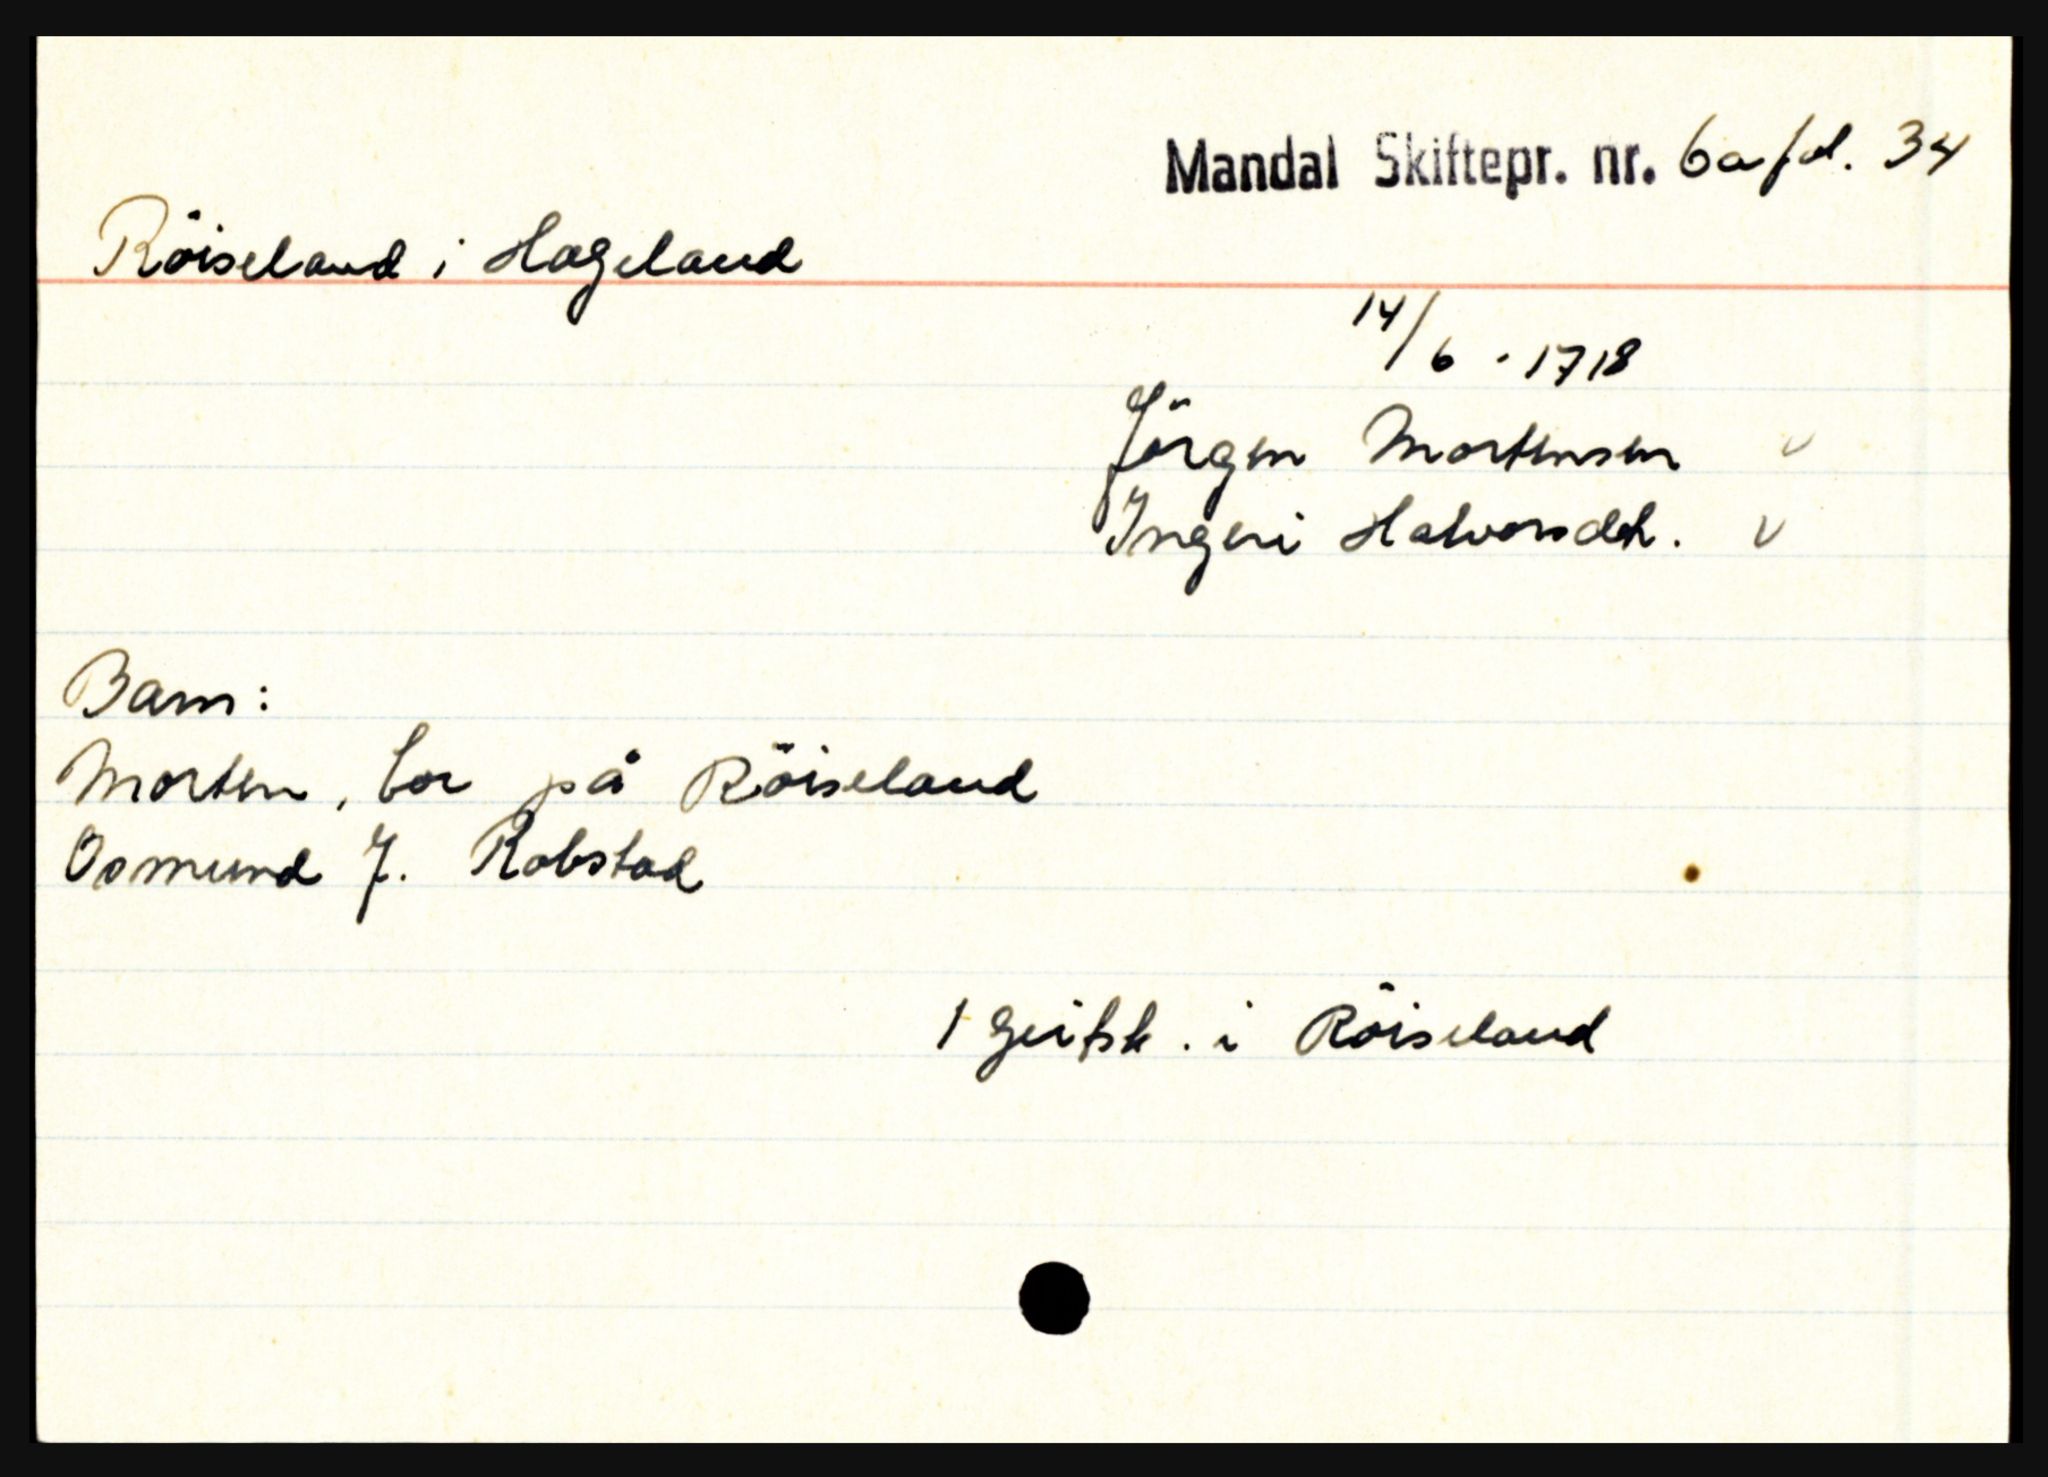 Mandal Skiftepr. nr. 6a fol. 34
Röiseland i Hægeland
14/6 - 1718
Jörgen Mortensen v
Ingeri Halvorsdch. v
Barn:
Morten, bor på Röiseland
Osmund J. Robstad
1 geitsk. i Röiseland